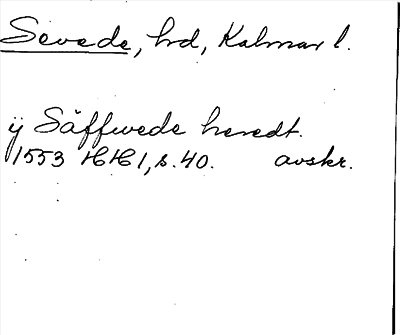 Sevede, hd, Kalmar l.
ij Säffwede heredt.
1553 HH 1, s. 40. avskr.